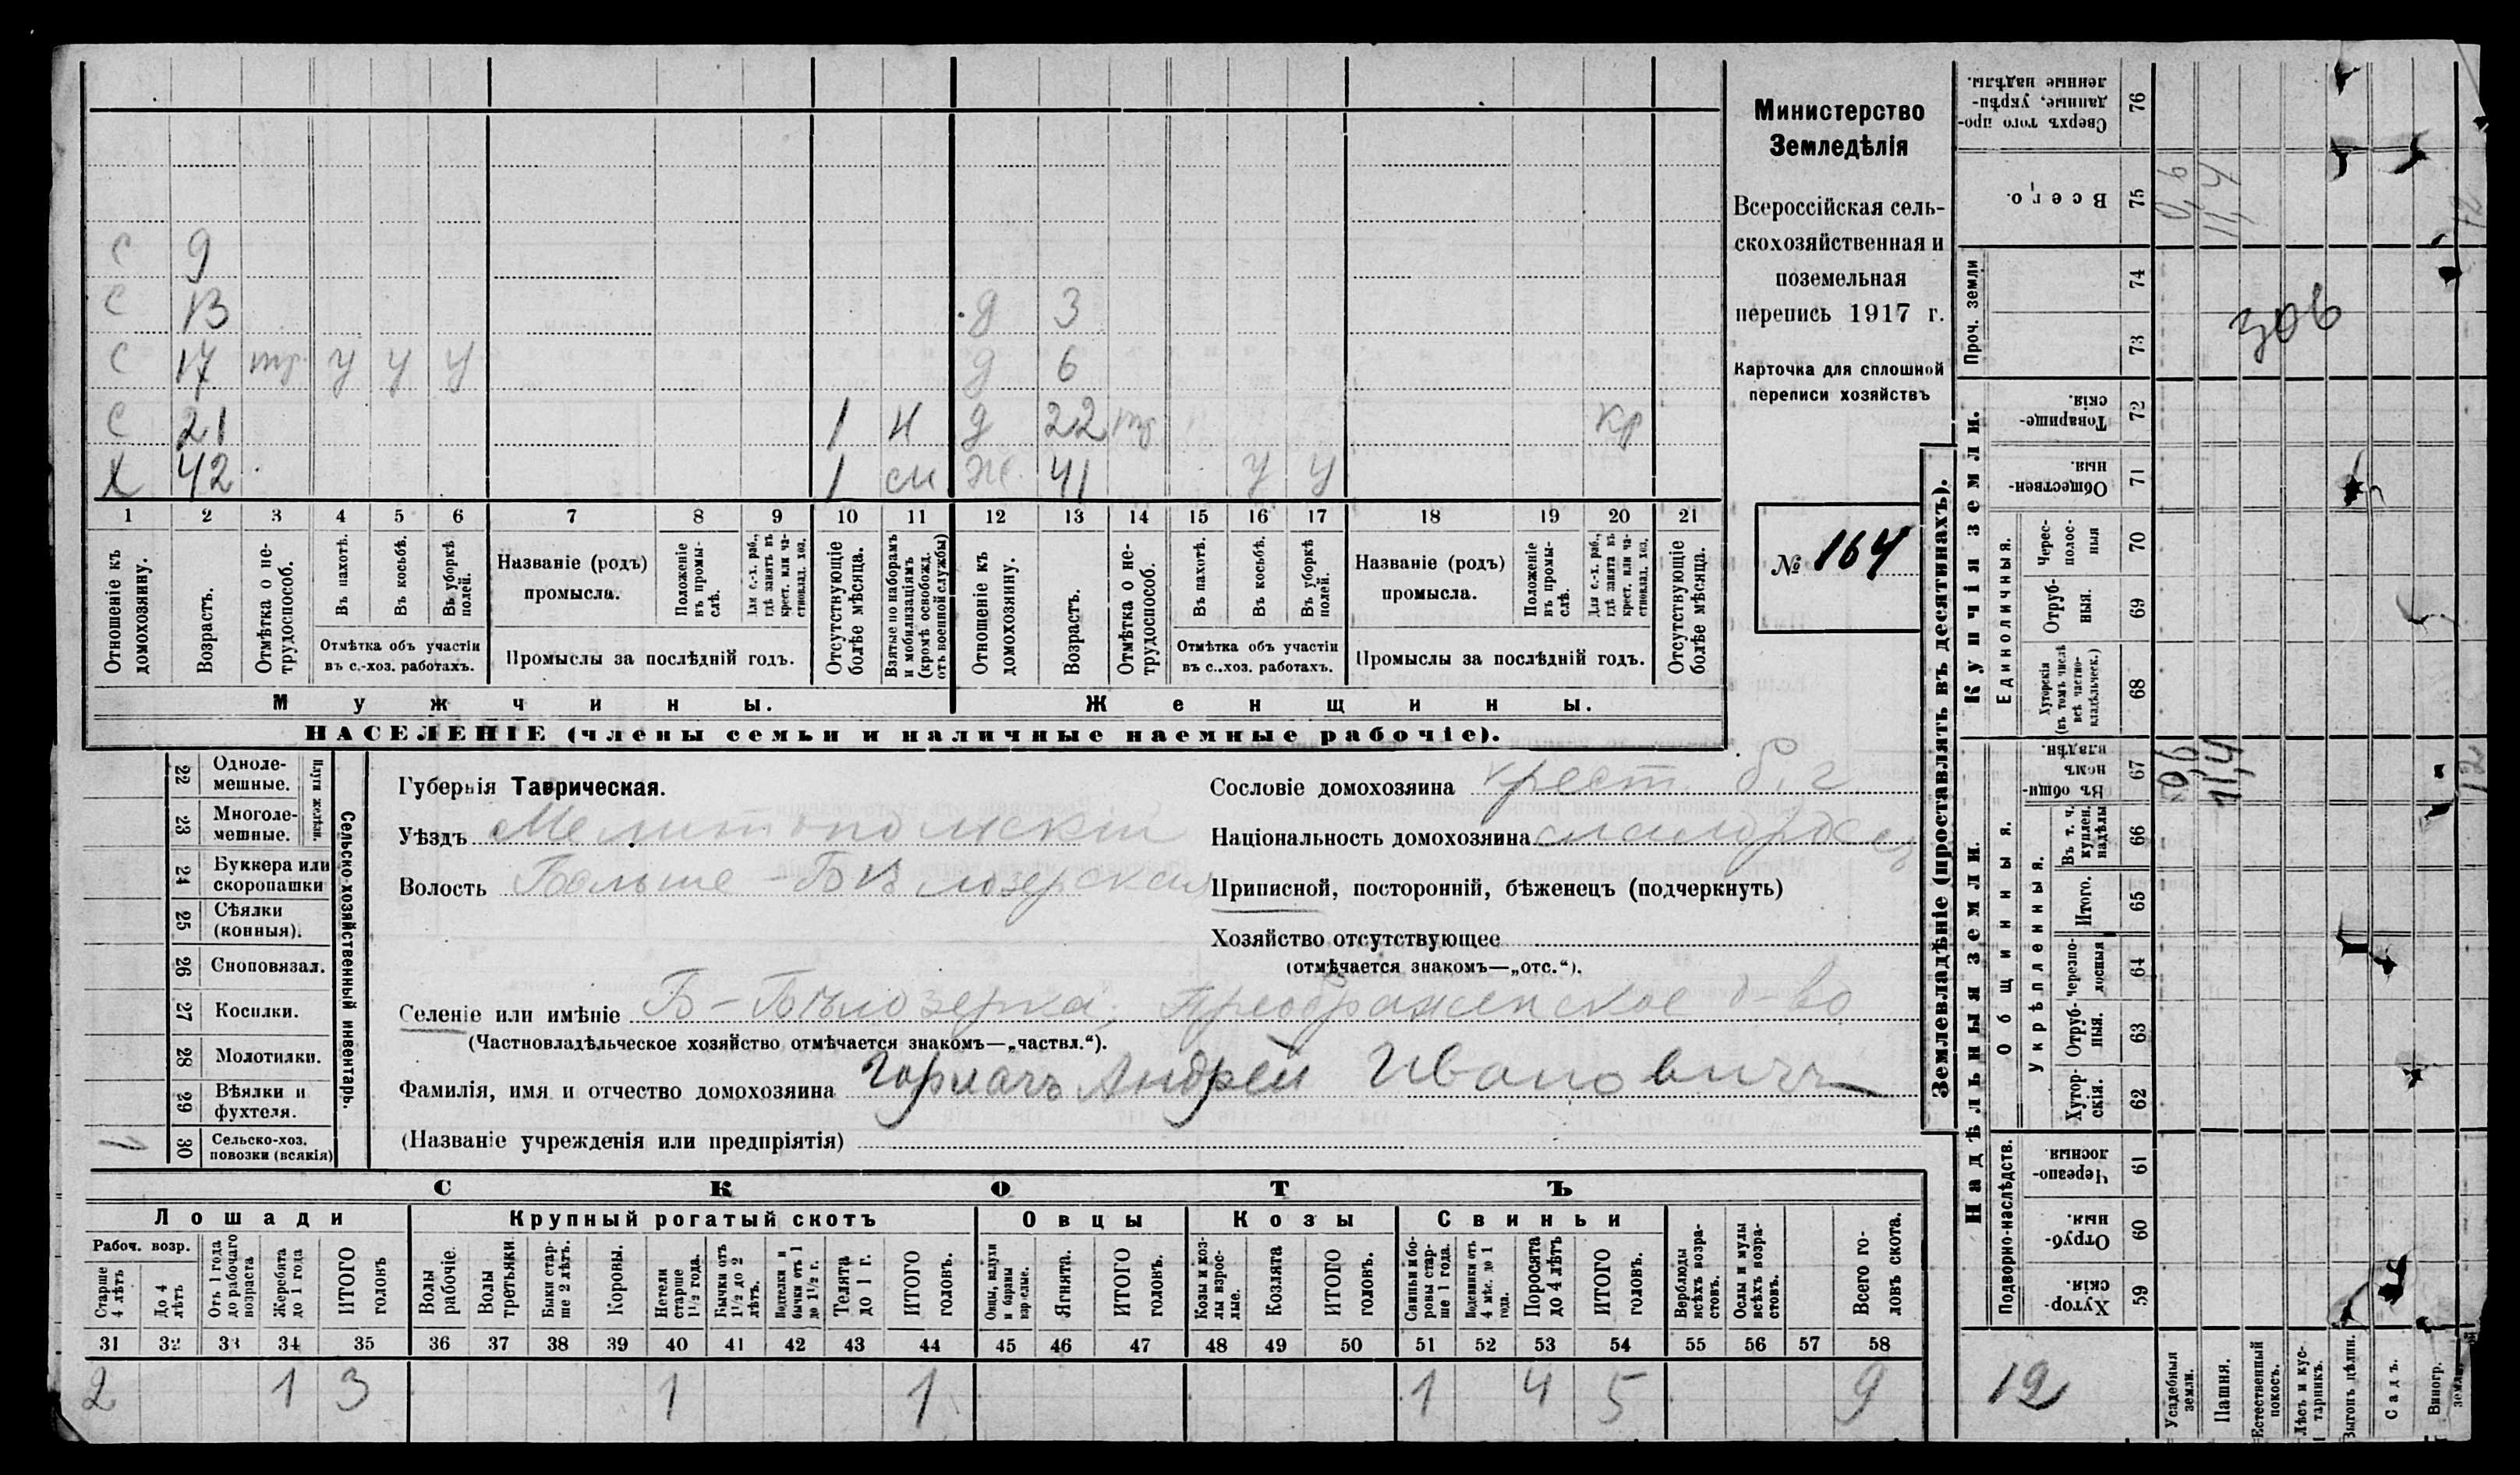 Министерство
Земледѣлія
Всероссійская сель-
скохозяйственная и
поземельная
перепись 1917 г.
Карточка для сплошной
переписи хозяйствъ
№ 164
с 9
с 13 д 3
с 17 тр. у у у д 6
с 21 1 н д 22 тр кр
х 42 1 см ж. 41 у у
1 2 3 4 5 6 7 8 9 10 11 12 13 14 15 16 17 18 19 20 21
Отношеніе къ домохозяину.
Возрастъ.
Отмѣтка о не-трудоспособ.
Въ пахотѣ.
Въ косьбѣ.
Въ уборкѣ полей.
Отмѣтка объ участіи
въ с.-хоз. работахъ.
Названіе (родъ)
промысла.
Положеніе въ промы-слѣ.
Для с.-х. раб., гдѣ занятъ въ крест. или ча-стновлад. хоз.
Промыслы за послѣдній годъ.
Отсутствующіе болѣе мѣсяца.
Взятые по наборамъ и мобилизаціямъ (кромѣ освобожд. отъ военной службы)
Отношеніе къ домохозяину.
Возрастъ.
Отмѣтка о не-трудоспособ.
Въ пахотѣ.
Въ косьбѣ.
Въ уборкѣ полей.
Отмѣтка объ участіи
въ с..хоз. работахъ.
Названіе (родъ)
промысла.
Положеніе въ промы-слѣ.
Для с.-х. раб., гдѣ занята въ крест. или ча-стновлад. хоз.
Промыслы за послѣдній годъ.
Отсутствующіе болѣе мѣсяца.
Мужчины. Женщины.
НАСЕЛЕНІЕ (члены семьи и наличные наемные рабочіе).
22 Одноле-мешные.
23 Многоле-мешные.
Плуги желѣзн.
24 Буккера или скоропашки
25 Сѣялки (конныя).
26 Сноповязал.
27 Косилки.
28 Молотилки.
29 Вѣялки и фухтеля.
1 30 Сельско-хоз. повозки (всякія)
Сельско-хозяйственный инвентарь.
Губернія Таврическая.
Уѣздъ Мелитопольскій
Волость Больше-Бѣлозерская
Сословіе домохозяина крест. б. г.
Національность домохозяина малоросъ
Приписной, посторонній, бѣженецъ (подчеркнуть)
Хозяйство отсутствующее
(отмѣчается знакомъ—„отс.“).
Селеніе или имѣніе Б-Бѣлозерка, Преображенское о-во
(Частновладѣльческое хозяйство отмѣчается знакомъ—„частвл.“).
Фамилія, имя и отчество домохозяина Горлачъ Андрей Ивановичъ
(Названіе учрежденія или предпріятія)
СКОТЪ
Лошади Крупный рогатый скотъ Овцы Козы Свиньи
Рабоч. возр.
Старше 4 лѣтъ
До 4 лѣтъ
Отъ 1 года до рабочаго возраста
Жеребята до 1 года
ИТОГО головъ
Волы рабочіе.
Волы третьяки.
Быки стар-ше 2 лѣтъ.
Коровы.
Нетели старше 1½ года.
Бычки отъ 1½ до 2 лѣтъ.
Подтелки и бычки отъ 1 до 1½ г.
Телята до 1 г.
ИТОГО головъ.
Овцы, валухи и бараны взрослые.
Ягнята.
ИТОГО головъ.
Козы и коз-лы взрос-лые.
Козлята
ИТОГО головъ.
Свиньи и бо-ровы стар-ше 1 года.
Подсвинки отъ 4 мѣс. до 1 года.
Поросята до 4 лѣтъ
ИТОГО головъ.
Верблюды всѣхъ возра-стовъ.
Ослы и мулы всѣхъ возра-стовъ.
Всего го-ловъ скота.
31 32 33 34 35 36 37 38 39 40 41 42 43 44 45 46 47 48 49 50 51 52 53 54 55 56 57 58
2 1 3 1 1 1 4 5 9
Землевладѣніе (проставлять въ десятинахъ).
Надѣльныя земли. Купчія земли. Проч. земли
Подворно-наслѣдств.
Общинныя.
Укрѣпленныя.
Единоличныя.
Хутор-скія. 59
Отруб-ныя. 60
Черезпо-лосныя. 61
Хутор-скія. 62
Отруб-ныя. 63
черезпо-лосныя 64
Итого. 65
Въ т. ч. куплен. надѣлы 66
Въ общин-номъ владѣн. 67
Хуторскія (въ томъ числѣ всѣ частно-владѣльческ.) 68
Отруб-ныя. 69
Черес-полос-ныя 70
Обществен-ныя. 71
Товарище-скія. 72
73
74
Всего. 75
Сверхъ того про-данные, укрѣп-ленные надѣлы. 76
12
Усадебныя земли. 0,6 0,6
Пашня. 11,4 11,4
Естественный покосъ.
Лѣсъ и кус-тарникъ.
Выгонъ цѣлин.
Садъ.
Виногр.
12 12
306